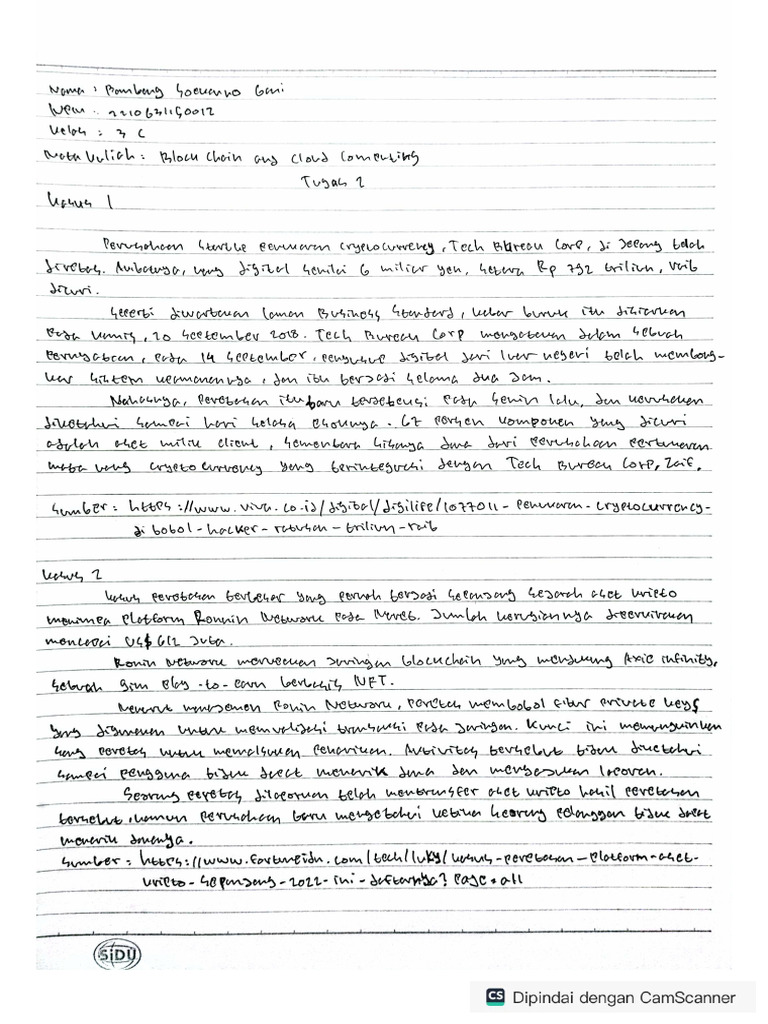 Nama : Bambang Soekarno Gani
NPM : 2210631150012
Kelas : 3 C
Mata Kuliah : Block Chain and Cloud Computing
Tugas 2
Kasus 1
Perusahaan startup penukaran cryptocurrency, Tech Bureau Corp, di Jepang telah
diretas. Akibatnya, uang digital senilai 6 miliar yen, setara Rp 792 triliun, raib
dicuri.
Seperti diwartakan laman Business Standard, kabar buruk itu disiarkan
pada Kamis, 20 September 2018. Tech Bureau Corp mengatakan dalam sebuah
pernyataan, pada 14 September, penyusup digital dari luar negeri telah membong-
kar sistem keamanannya, dan itu terjadi selama dua jam.
Nahasnya, peretasan itu baru terdeteksi pada senin lalu, dan kerusakan
diketahui sampai hari selasa esoknya. 67 persen komponen yang dicuri
adalah aset milik client, sementara sisanya dana dari perusahaan pertukaran
mata uang cryptocurrency yang terintegrasi dengan Tech Bureau Corp, Zaif.
Sumber : https://www.viva.co.id/digital/digilife/1077011-penukaran-cryptocurrency-
di bobol-hacker-ratusan-triliun-raib
Kasus 2
Kasus peretasan terbesar yang pernah terjadi sepanjang sejarah aset kripto
menimpa platform Ronnin Network pada Maret. Jumlah kerugiannya diperkirakan
mencapai US$ 612 Juta.
Ronin Network merupakan jaringan blockchain yang mendukung Axie Infinity,
sebuah gim play-to-earn berbasis NFT.
Menurut manajemen Ronin Network, peretas membobol fitur private keys
yang digunakan untuk memvalidasi transaksi pada jaringan. Kunci ini memungkinkan
sang peretas untuk memalsukan penarikan. Aktivitas tersebut tidak diketahui
sampai pengguna tidak dapat menarik dana dan mengajukan laporan.
Seorang peretas dilaporkan telah mentransfer aset kripto hasil peretasan
tersebut, namun perusahaan baru mengetahui ketika seorang pelanggan tidak dapat
menarik dananya.
Sumber : https://www.fortuneidn.com/tech/luky/kasus-peretasan-platform-aset-
kripto-sepanjang-2022-ini-daftarnya?page=all
SiDU
CS Dipindai dengan CamScanner